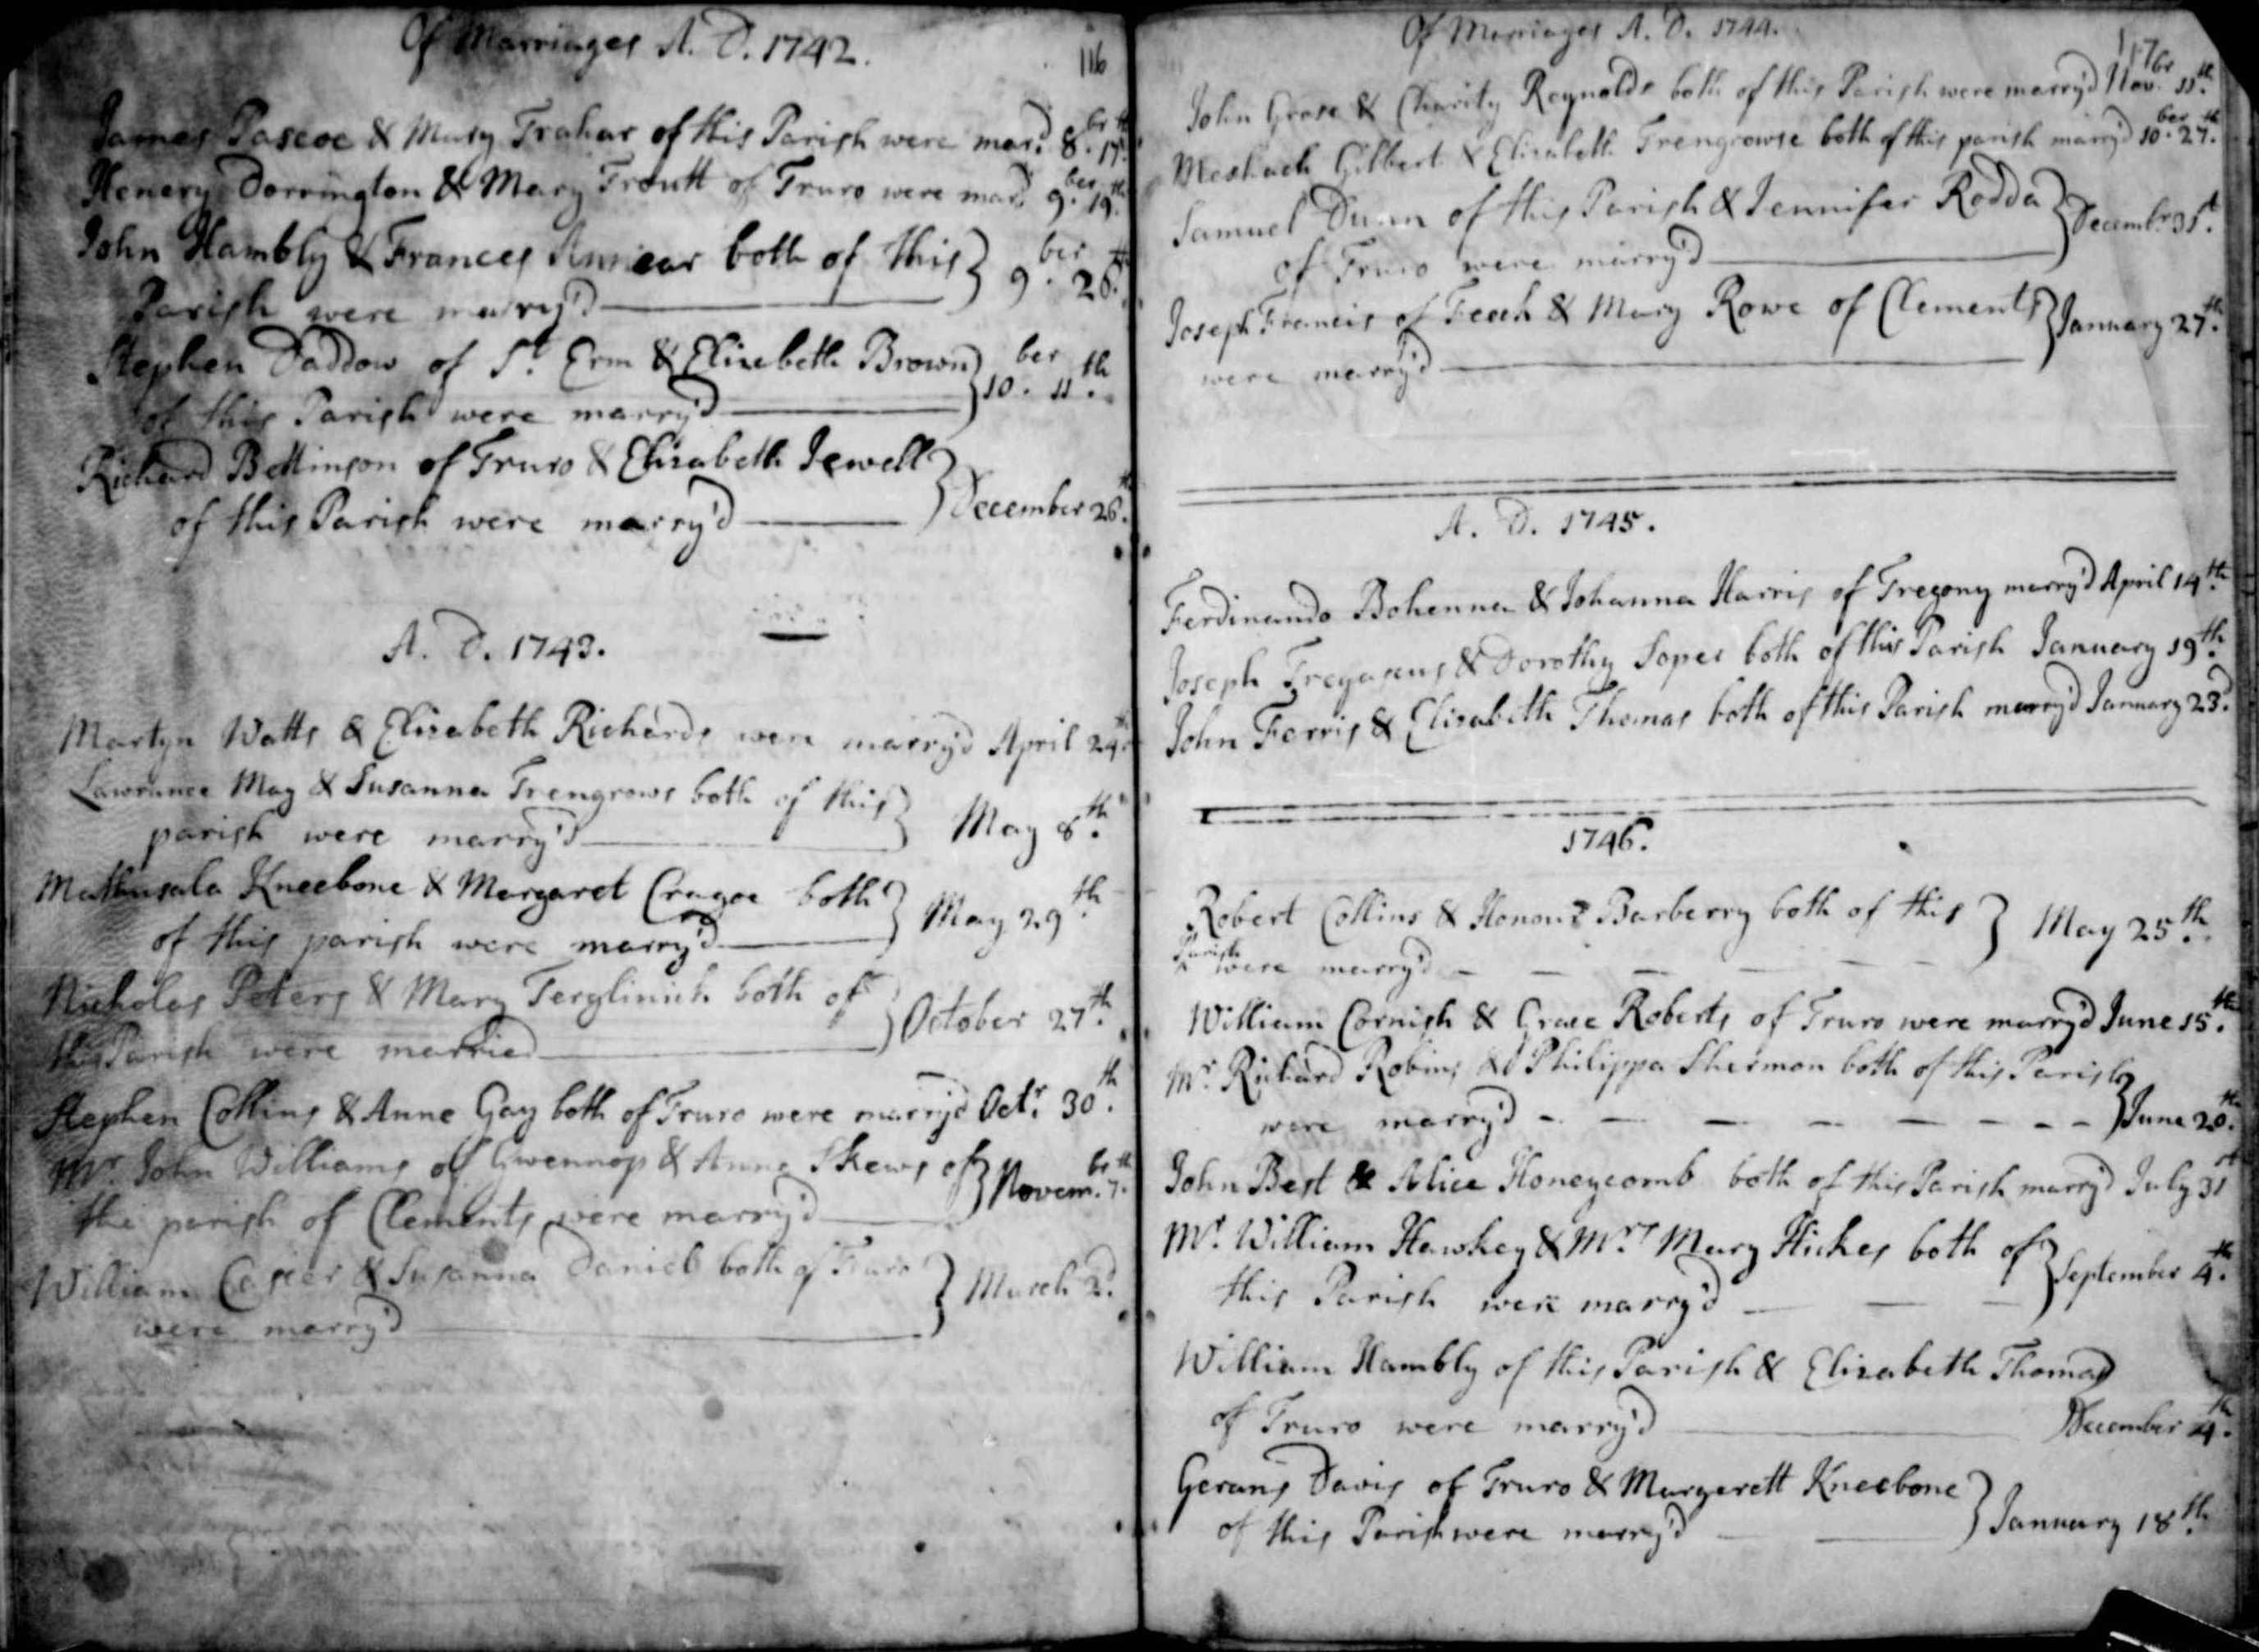 Of Marriages A. D. 1742.
116
James Pascoe & Mary Trahar of this Parish were mar'd 8.br 17th
Henery Dorrington & Mary Troutt of Truro were mar'd 9.ber 19th
John Hambly & Frances Annear both of this } 9.ber 26th
Parish were marry'd
Stephen Daddow of St. Erm & Elizebeth Brown } 10.ber 11th.
of this Parish were marry'd
Richard Bettinson of Truro & Elizabeth Jewell } December 26th.
of this Parish were marry'd
A. D. 1743.
Martyn Watts & Elizabeth Richards were marry'd April 24th.
Lawrance May & Susanna Trengrows both of this } May 8th.
parish were marry'd
Mathusala Kneebone & Margaret Cragoe both } May 29th
of this parish were marry'd
Nicholas Peters & Mary both of } October 27th.
this Parish were married
Stephen Collins & Anne Gay both of Truro were marry'd Octr. 30th.
Mr. John Williams of Gwennop & Anne Skews of } Novem.br 7th.
the parish of Clements were marry'd
William & Susanna Daniel both of Truro } March 2d.
were marry'd
Of Marriages A. D. 1744.
117
John Grose & Charity Reynolds both of this Parish were marry'd Nov.br 11th.
Meshach Gilbert & Elizabeth Trengrowse both of this parish marry'd 10.ber 27th.
Samuel Dunn of this Parish & Jennifer Rodda } Decembr. 31st.
of Truro were marry'd
Joseph Francis of Feock & Mary Rowe of Clements } January 27th.
were marry'd
A. D. 1745.
Ferdinando Bohenna & Johanna Harris of Tregony marry'd April 14th.
Joseph & Dorothy Soper both of this Parish January 19th.
John Ferris & Elizabeth Thomas both of this Parish marry'd January 23d.
1746.
Robert Collins & Honour Barberry both of this } May 25th.
Parish were marry'd
William Cornish & Grace Roberts of Truro were marry'd June 15th.
Mr. Richard Robins & Philippa Sherman both of this Parish } June 20th.
were marry'd
John Best & Alice Honeycomb both of this Parish marry'd July 31st
Mr. William Hawkey & Mrs. Mary Hickes both of } September 4th.
this Parish were marry'd
William Hambly of this Parish & Elizabeth Thomas
of Truro were marry'd December 4th.
Gerans Davis of Truro & Margerett Kneebone } January 18th.
of this Parish were marry'd